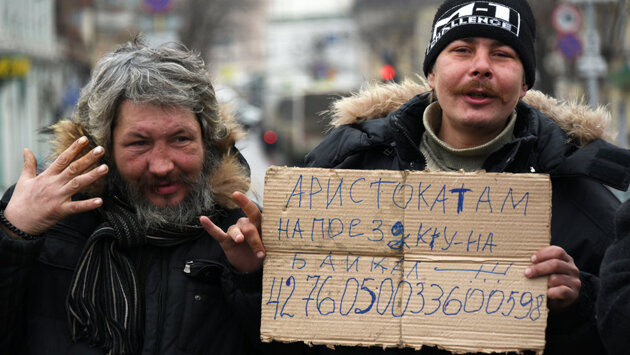 CHALLENGE
АРИСТОКАТАМ
НА ПОЕЗДКУ-НА
БАЙКАЛ
4276050033600598